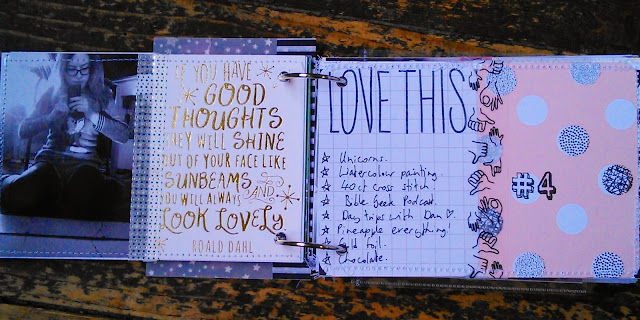 IF YOU HAVE
GOOD
THOUGHTS
THEY WILL SHINE
OUT OF YOUR FACE LIKE
SUNBEAMS AND
YOU WILL ALWAYS
LOOK LOVELY
ROALD DAHL
LOVE THIS
Unicorns.
Watercolour painting.
40ct cross stitch.
Bible Geek Podcast.
Day trips with Dan ♡.
Pineapple everything!
Gold foil.
Chocolate.
#4